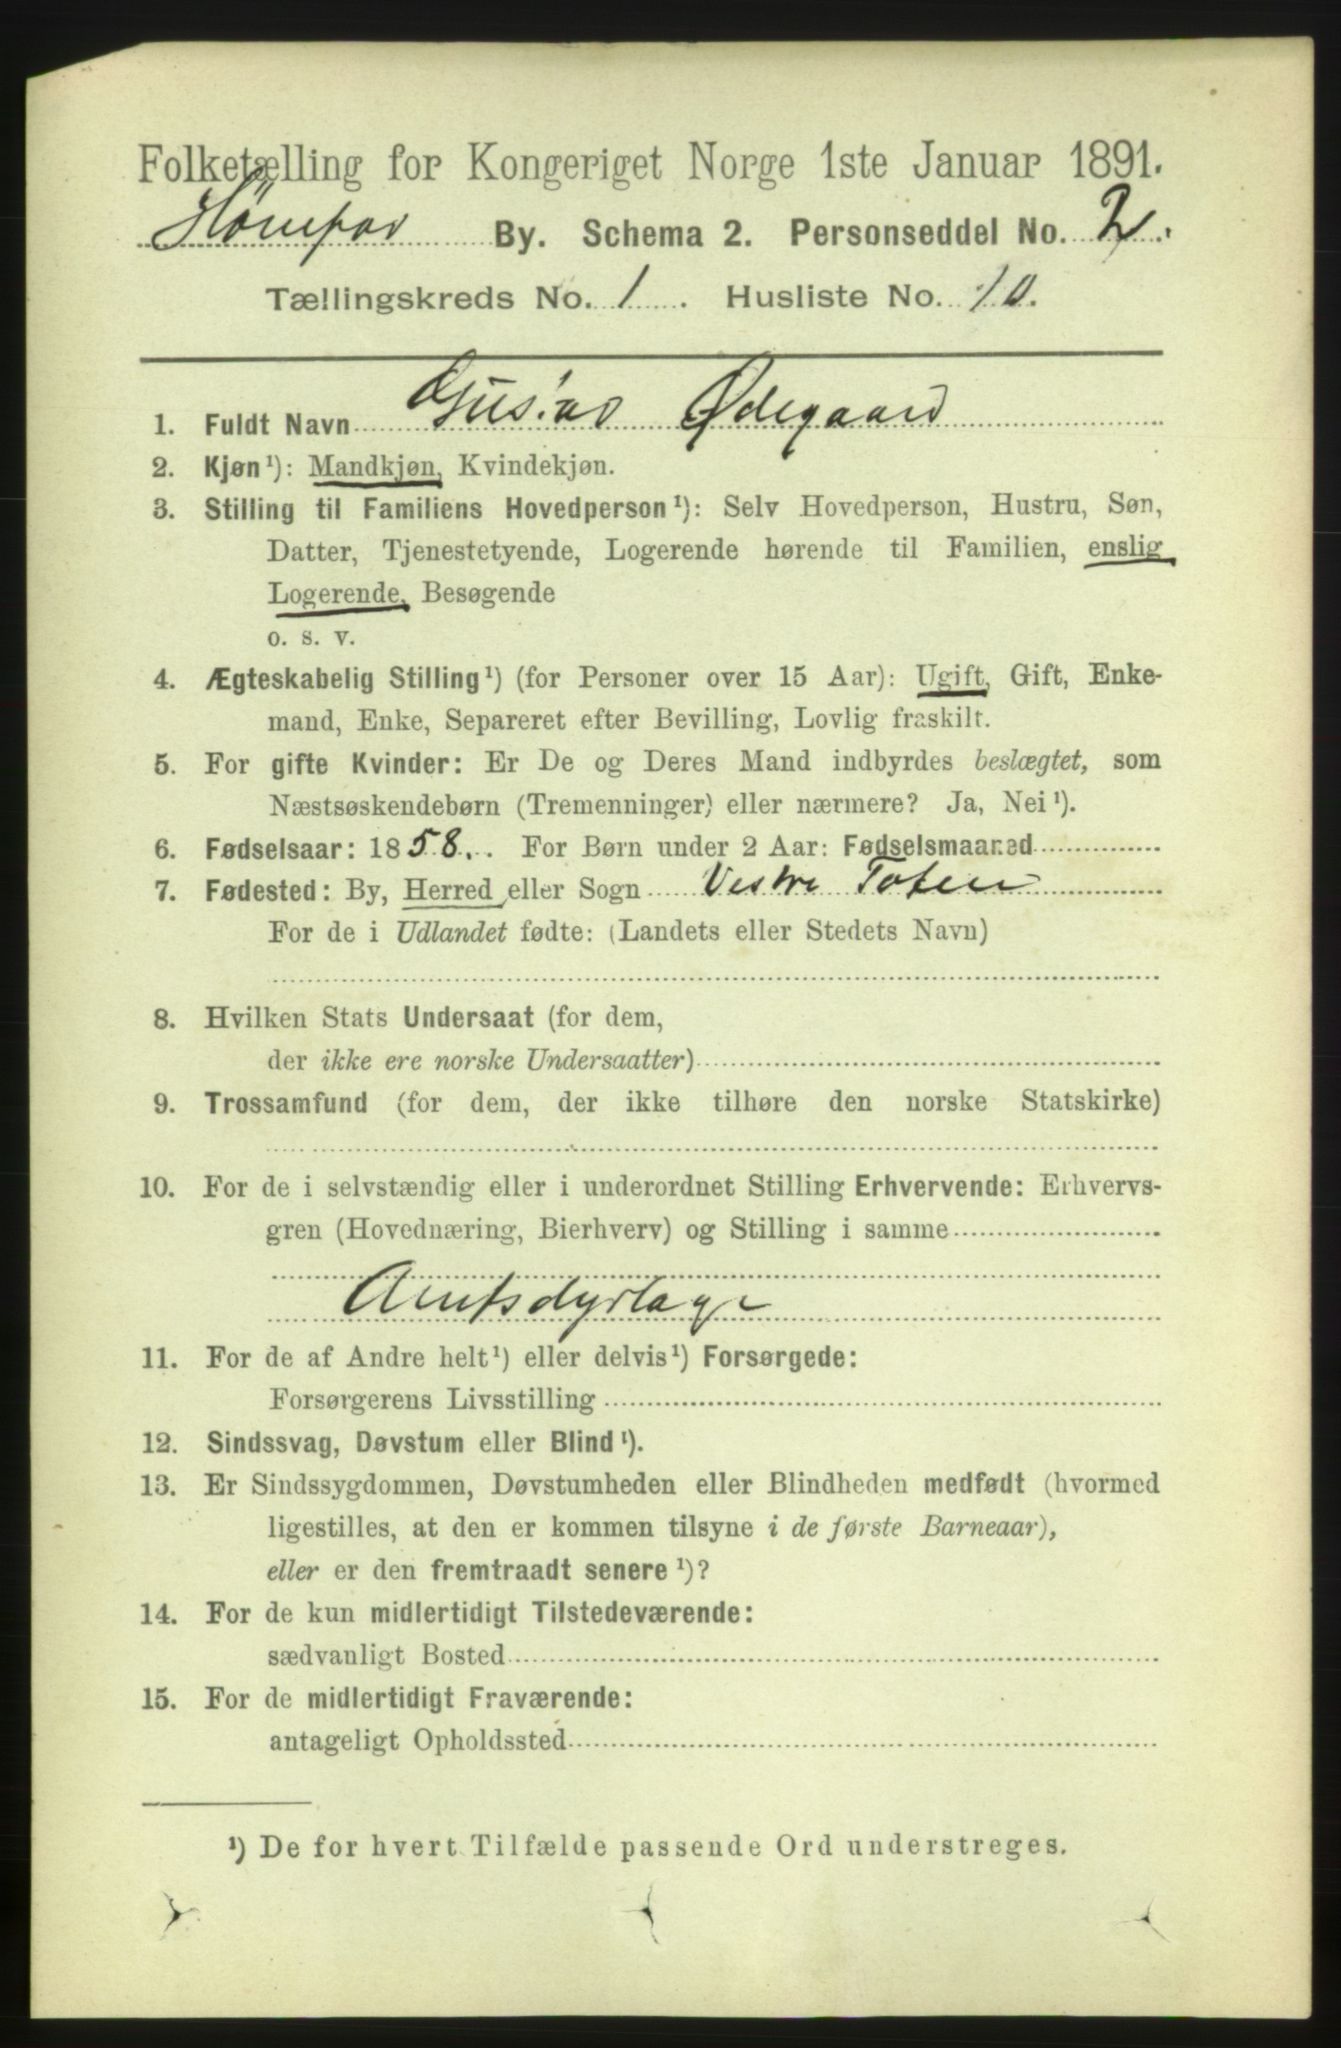 Folketælling for Kongeriget Norge 1ste Januar 1891.
Hønefos By. Schema 2. Personseddel No. 2.
Tællingskreds No. 1. Husliste No. 10.
1. Fuldt Navn Gustav Ødegaard
2. Kjøn¹): Mandkjøn, Kvindekjøn.
3. Stilling til Familiens Hovedperson¹): Selv Hovedperson, Hustru, Søn,
Datter, Tjenestetyende, Logerende hørende til Familien, enslig
Logerende, Besøgende
o. s. v.
4. Ægteskabelig Stilling¹) (for Personer over 15 Aar): Ugift, Gift, Enke-
mand, Enke, Separeret efter Bevilling, Lovlig fraskilt.
5. For gifte Kvinder: Er De og Deres Mand indbyrdes beslægtet, som
Næstsøskendebørn (Tremenninger) eller nærmere? Ja, Nei¹).
6. Fødselsaar: 1858. For Børn under 2 Aar: Fødselsmaaned
7. Fødested: By, Herred eller Sogn Vestre Toten
For de i Udlandet fødte: (Landets eller Stedets Navn)
8. Hvilken Stats Undersaat (for dem,
der ikke ere norske Undersaatter)
9. Trossamfund (for dem, der ikke tilhøre den norske Statskirke)
10. For de i selvstændig eller i underordnet Stilling Erhvervende: Erhvervs-
gren (Hovednæring, Bierhverv) og Stilling i samme
Amtsdyrlæge
11. For de af Andre helt¹) eller delvis¹) Forsørgede:
Forsørgerens Livsstilling
12. Sindssvag, Døvstum eller Blind¹).
13. Er Sindssygdommen, Døvstumheden eller Blindheden medfødt (hvormed
ligestilles, at den er kommen tilsyne i de første Barneaar),
eller er den fremtraadt senere¹)?
14. For de kun midlertidigt Tilstedeværende:
sædvanligt Bosted
15. For de midlertidigt Fraværende:
antageligt Opholdssted
¹) De for hvert Tilfælde passende Ord understreges.